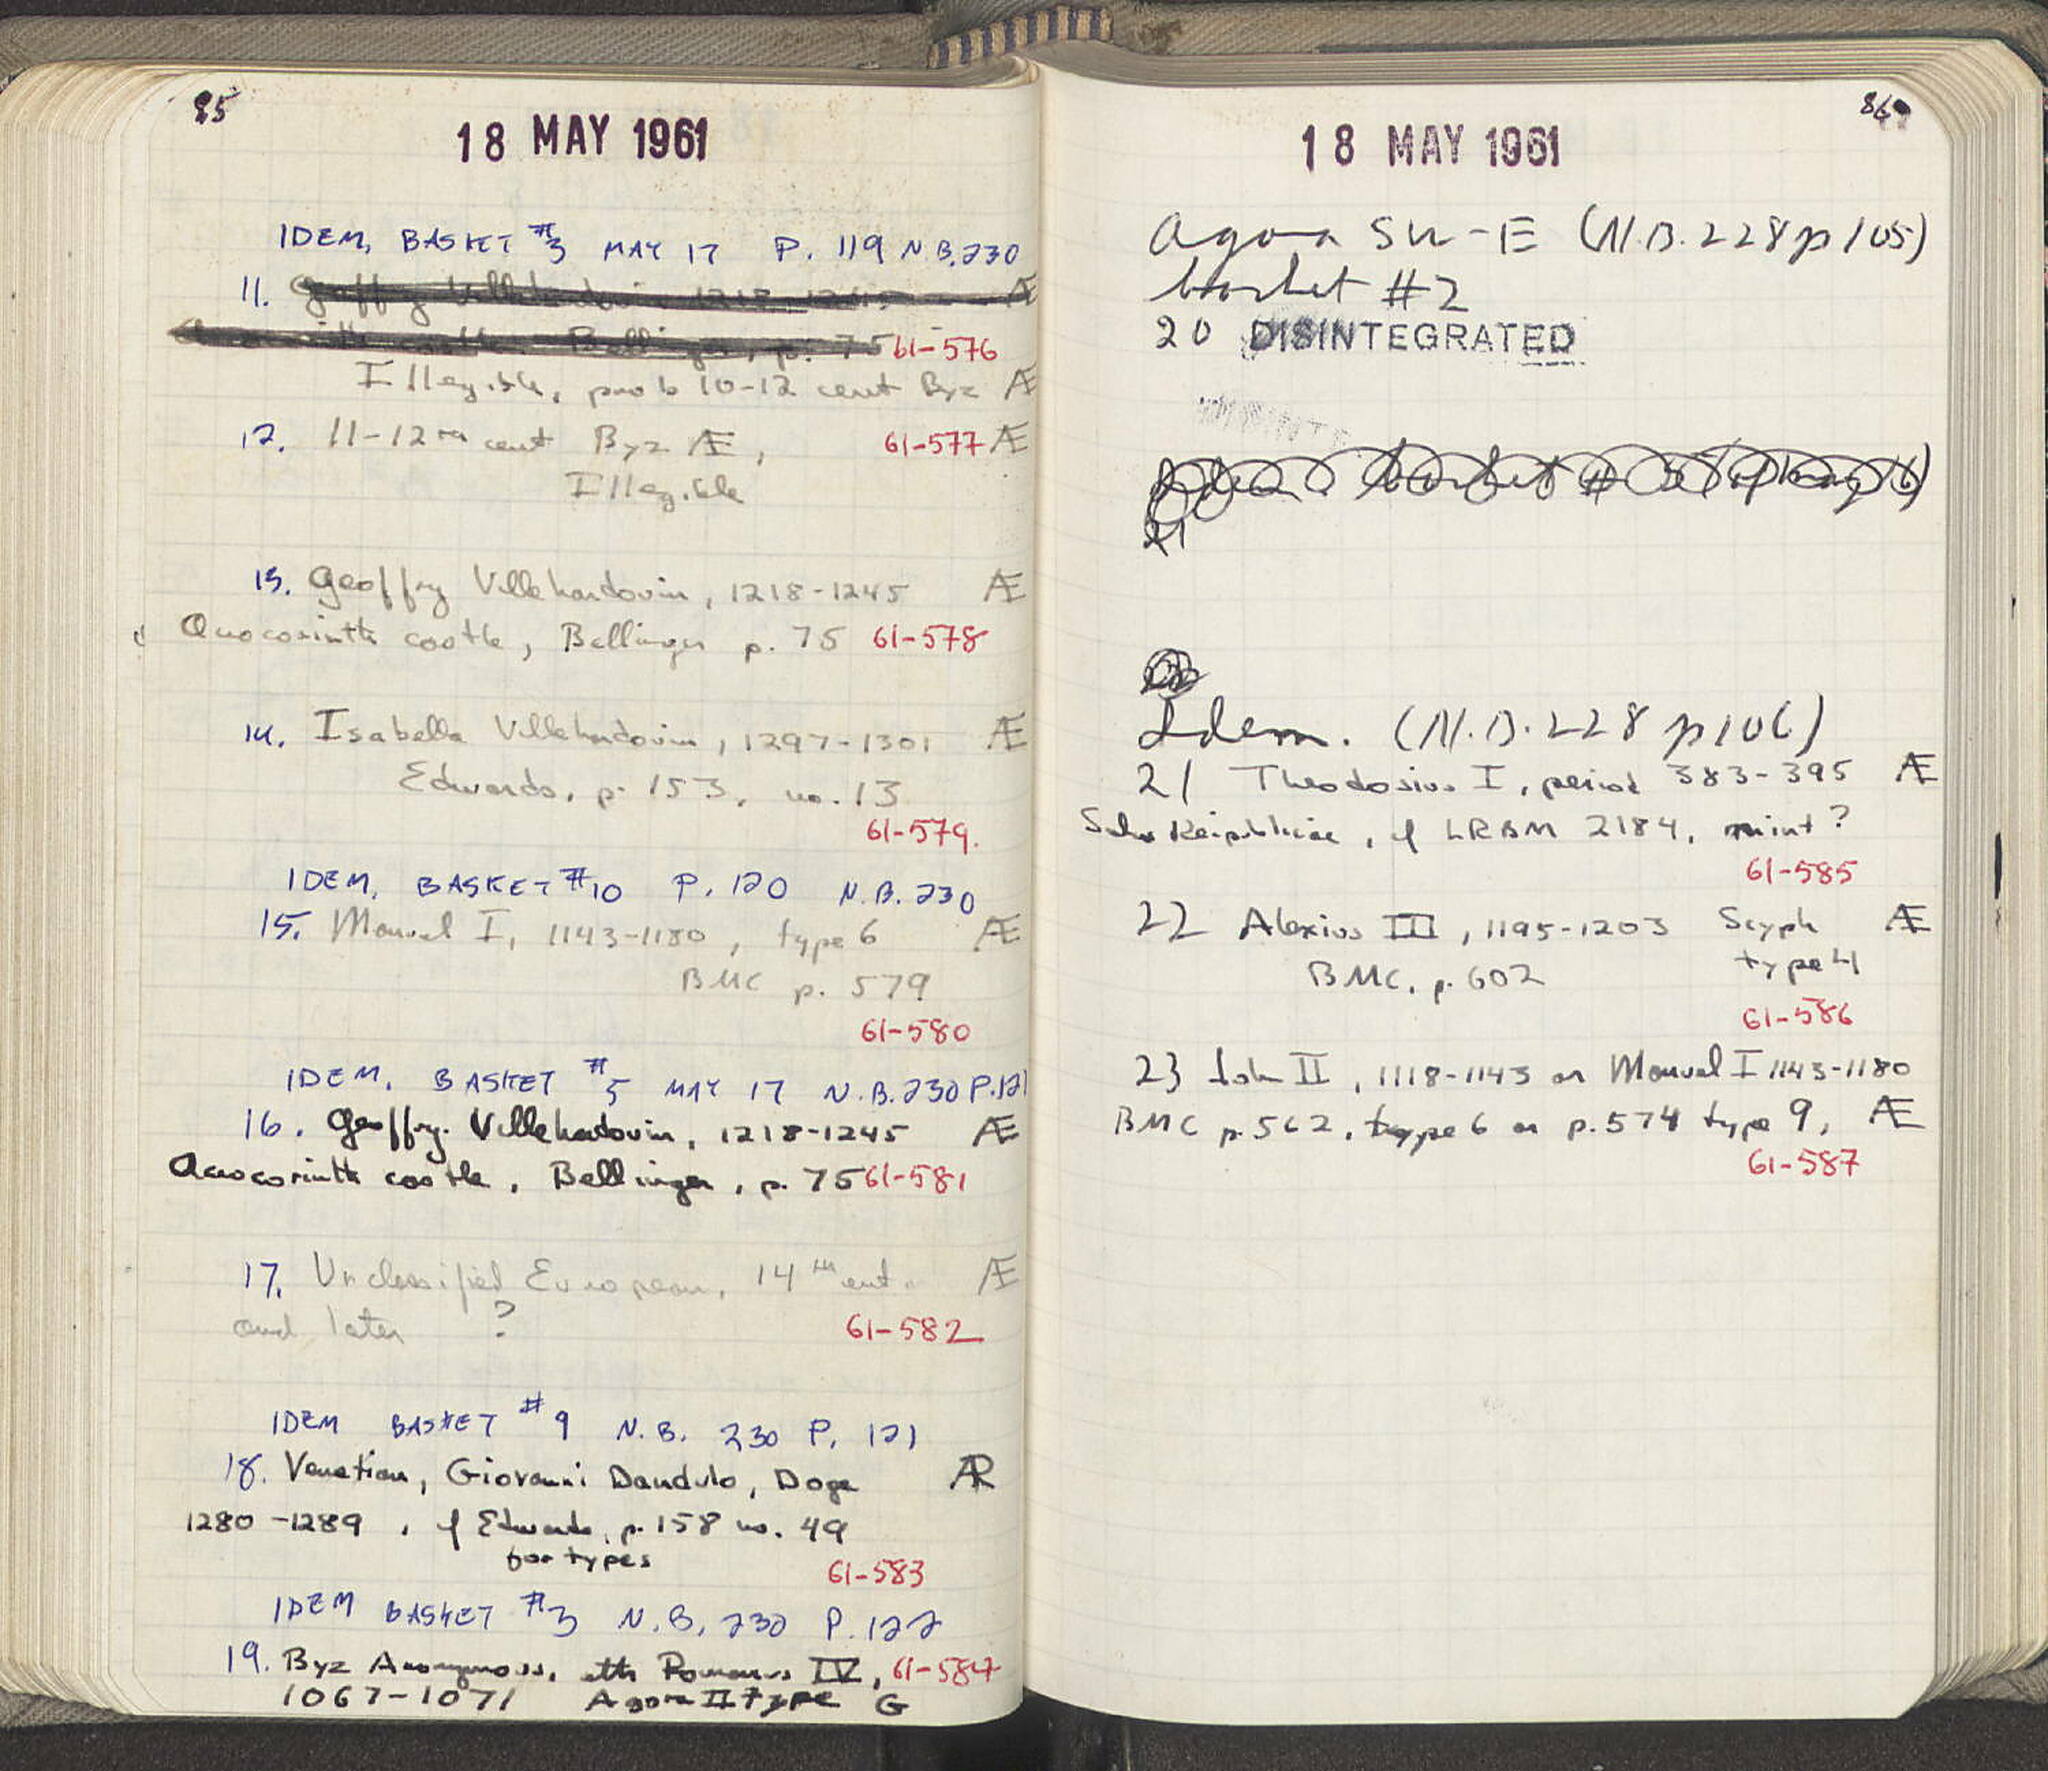 85
18 MAY 1961
IDEM, BASKET #3 MAY 17 P. 119 N.B. 230
11. Geoffry Villehardouin, 1218-1245 Æ
Acrocorinth castle, Bellinger, p. 75 61-576
Illegible, prob 10-12 cent Byz Æ
12. 11-12th cent Byz Æ, 61-577 Æ
Illegible
13. Geoffry Villehardouin, 1218-1245 Æ
Acrocorinth castle, Bellinger p. 75 61-578
14. Isabella Villehardouin, 1297-1301 Æ
Edwards, p. 153, no. 13
61-579.
IDEM, BASKET #10 P. 120 N.B. 230
15. Manuel I, 1143-1180, type 6 Æ
BMC p. 579
61-580
IDEM, BASKET #5 MAY 17 N.B. 230 P. 121
16. Geoffry Villehardouin, 1218-1245 Æ
Acrocorinth castle, Bellinger, p. 75 61-581
17. Unclassified European, 14th cent. Æ
and later ? 61-582
IDEM BASKET #9 N.B. 230 P. 121
18. Venetian, Giovanni Dandulo, Doge AR
1280-1289, cf Edwards, p. 158 no. 49
for types
61-583
IDEM BASKET #3 N.B. 230 P. 122
19. Byz Anonymous, attr Romanus IV, 61-584
1067-1071 Agora II type G
86
18 MAY 1961
Agora SW-E (N.B. 228 p 105)
basket #2
20 DISINTEGRATED
21
Idem. (N.B. 228 p 106)
21 Theodosius I, period 383-395 Æ
Salus Reipublicae, cf LRBM 2184, mint?
61-585
22 Alexius III, 1195-1203 Scyph Æ
BMC, p. 602 type 4
61-586
23 John II, 1118-1143 or Manuel I 1143-1180
BMC p. 562, type 6 or p. 574 type 9, Æ
61-587